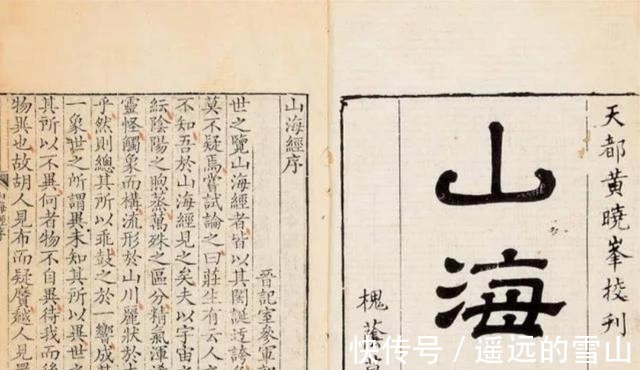 天都黃曉峯校刊
山海
槐蔭
山海經序
晉記室參軍
世之覽山海經者皆以其閎誕迂誇
莫不疑焉嘗試論之曰莊生有云人之
不知吾於山海經見之矣夫以宇宙之
紜陰陽之煦蒸萬殊之區分精氣渾
靈怪觸象而構流形於山川麗狀於
乎然則總其所以乖鼓之於一響成其
一象世之所謂異未知其所以異世之
其所以不異何者物不自異待我而後
物異也故胡人見布而疑黂越人見
山海經序
快传号/遥远的雪山